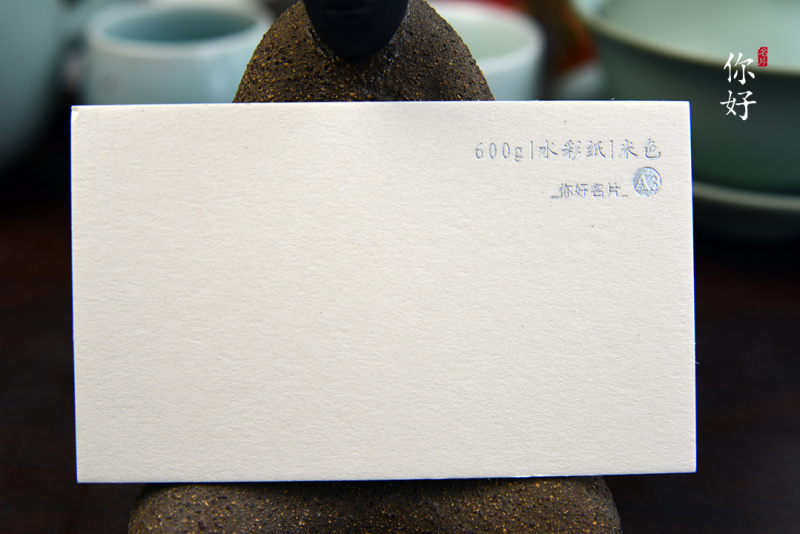 600g|水彩纸|米色
_你好名片_ A3
你好
名片